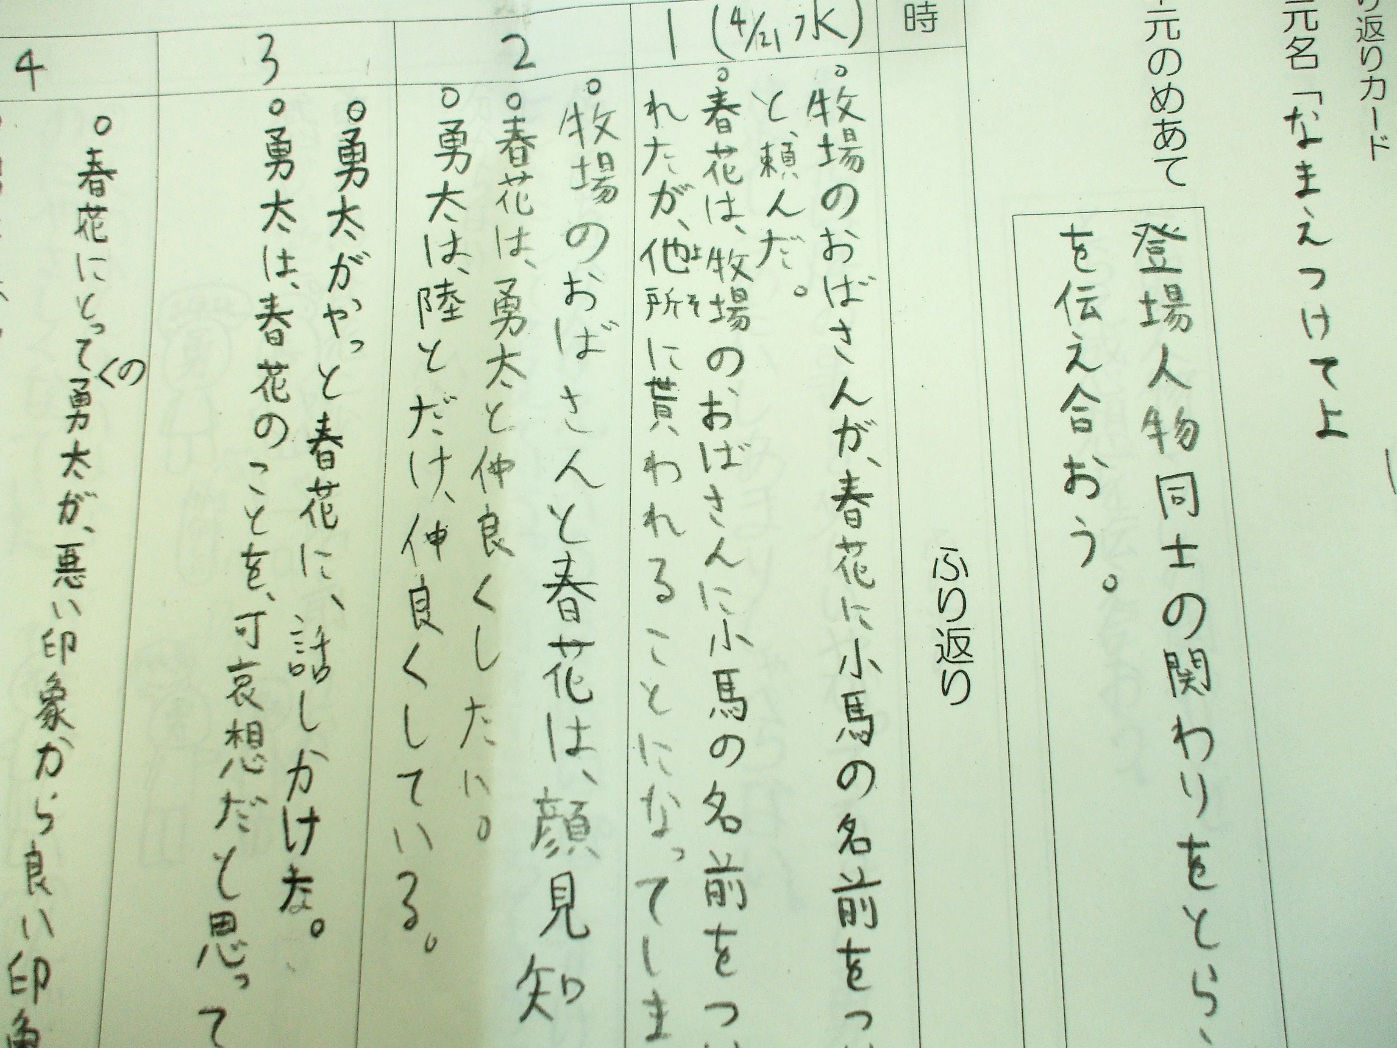 り返りカード
元名「なまえつけてよ
元のめあて
登場人物同士の関わりをとら、
を伝え合おう。
時
ふり返り
1(4/21水)
。牧場のおばさんが、春花に小馬の名前をつ
と、頼んだ。
。春花は、牧場のおばさんに小馬の名前をつ
れたが、他所に貰われることになってしま
よそ
2
。牧場のおばさんと春花は、顔見知
。春花は、勇太と仲良くしたい。
。勇太は、陸とだけ、仲良くしている。
3
。勇太がやっと春花に、話しかけた。
。勇太は、春花のことを、可哀想だと思って
4
。春花にとって勇太が、悪い印象から良い印象
くの